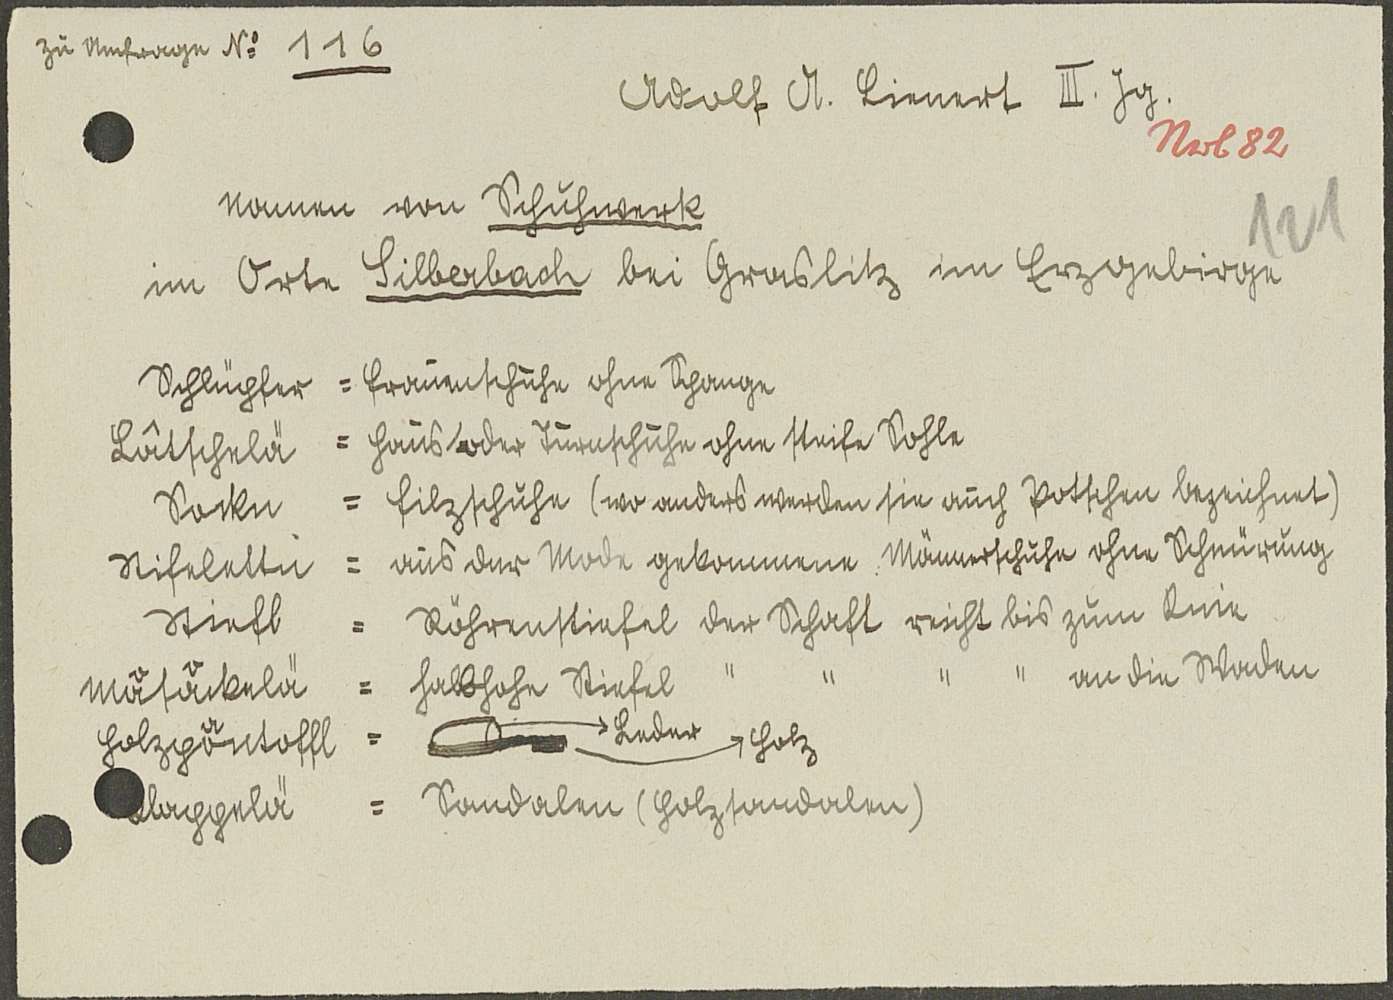 Zu Umfrage No 116
Adolf A. Lienert III. Jg.
Nwb 82
121
Namen von Schuhwerk
im Orte Silberbach bei Graslitz im Erzgebirge
Schlüpfer = Frauenschuhe ohne Spange
Lâtschelä = Haus oder Turnschuhe ohne steife Sohle
Sockn = Filzschuhe (wo anders werden sie auch Potschen bezeichnet)
Stifelettn = aus der Mode gekommene Männerschuhe ohne Schnürung
Stiefl = Röhrenstiefel der Schaft reicht bis zum Knie
Måsåckelä = halbhohe Stiefel " " " " an die Waden
Holzpåntoffl = Leder Holz
Klappelä = Sandalen (Holzsandalen)